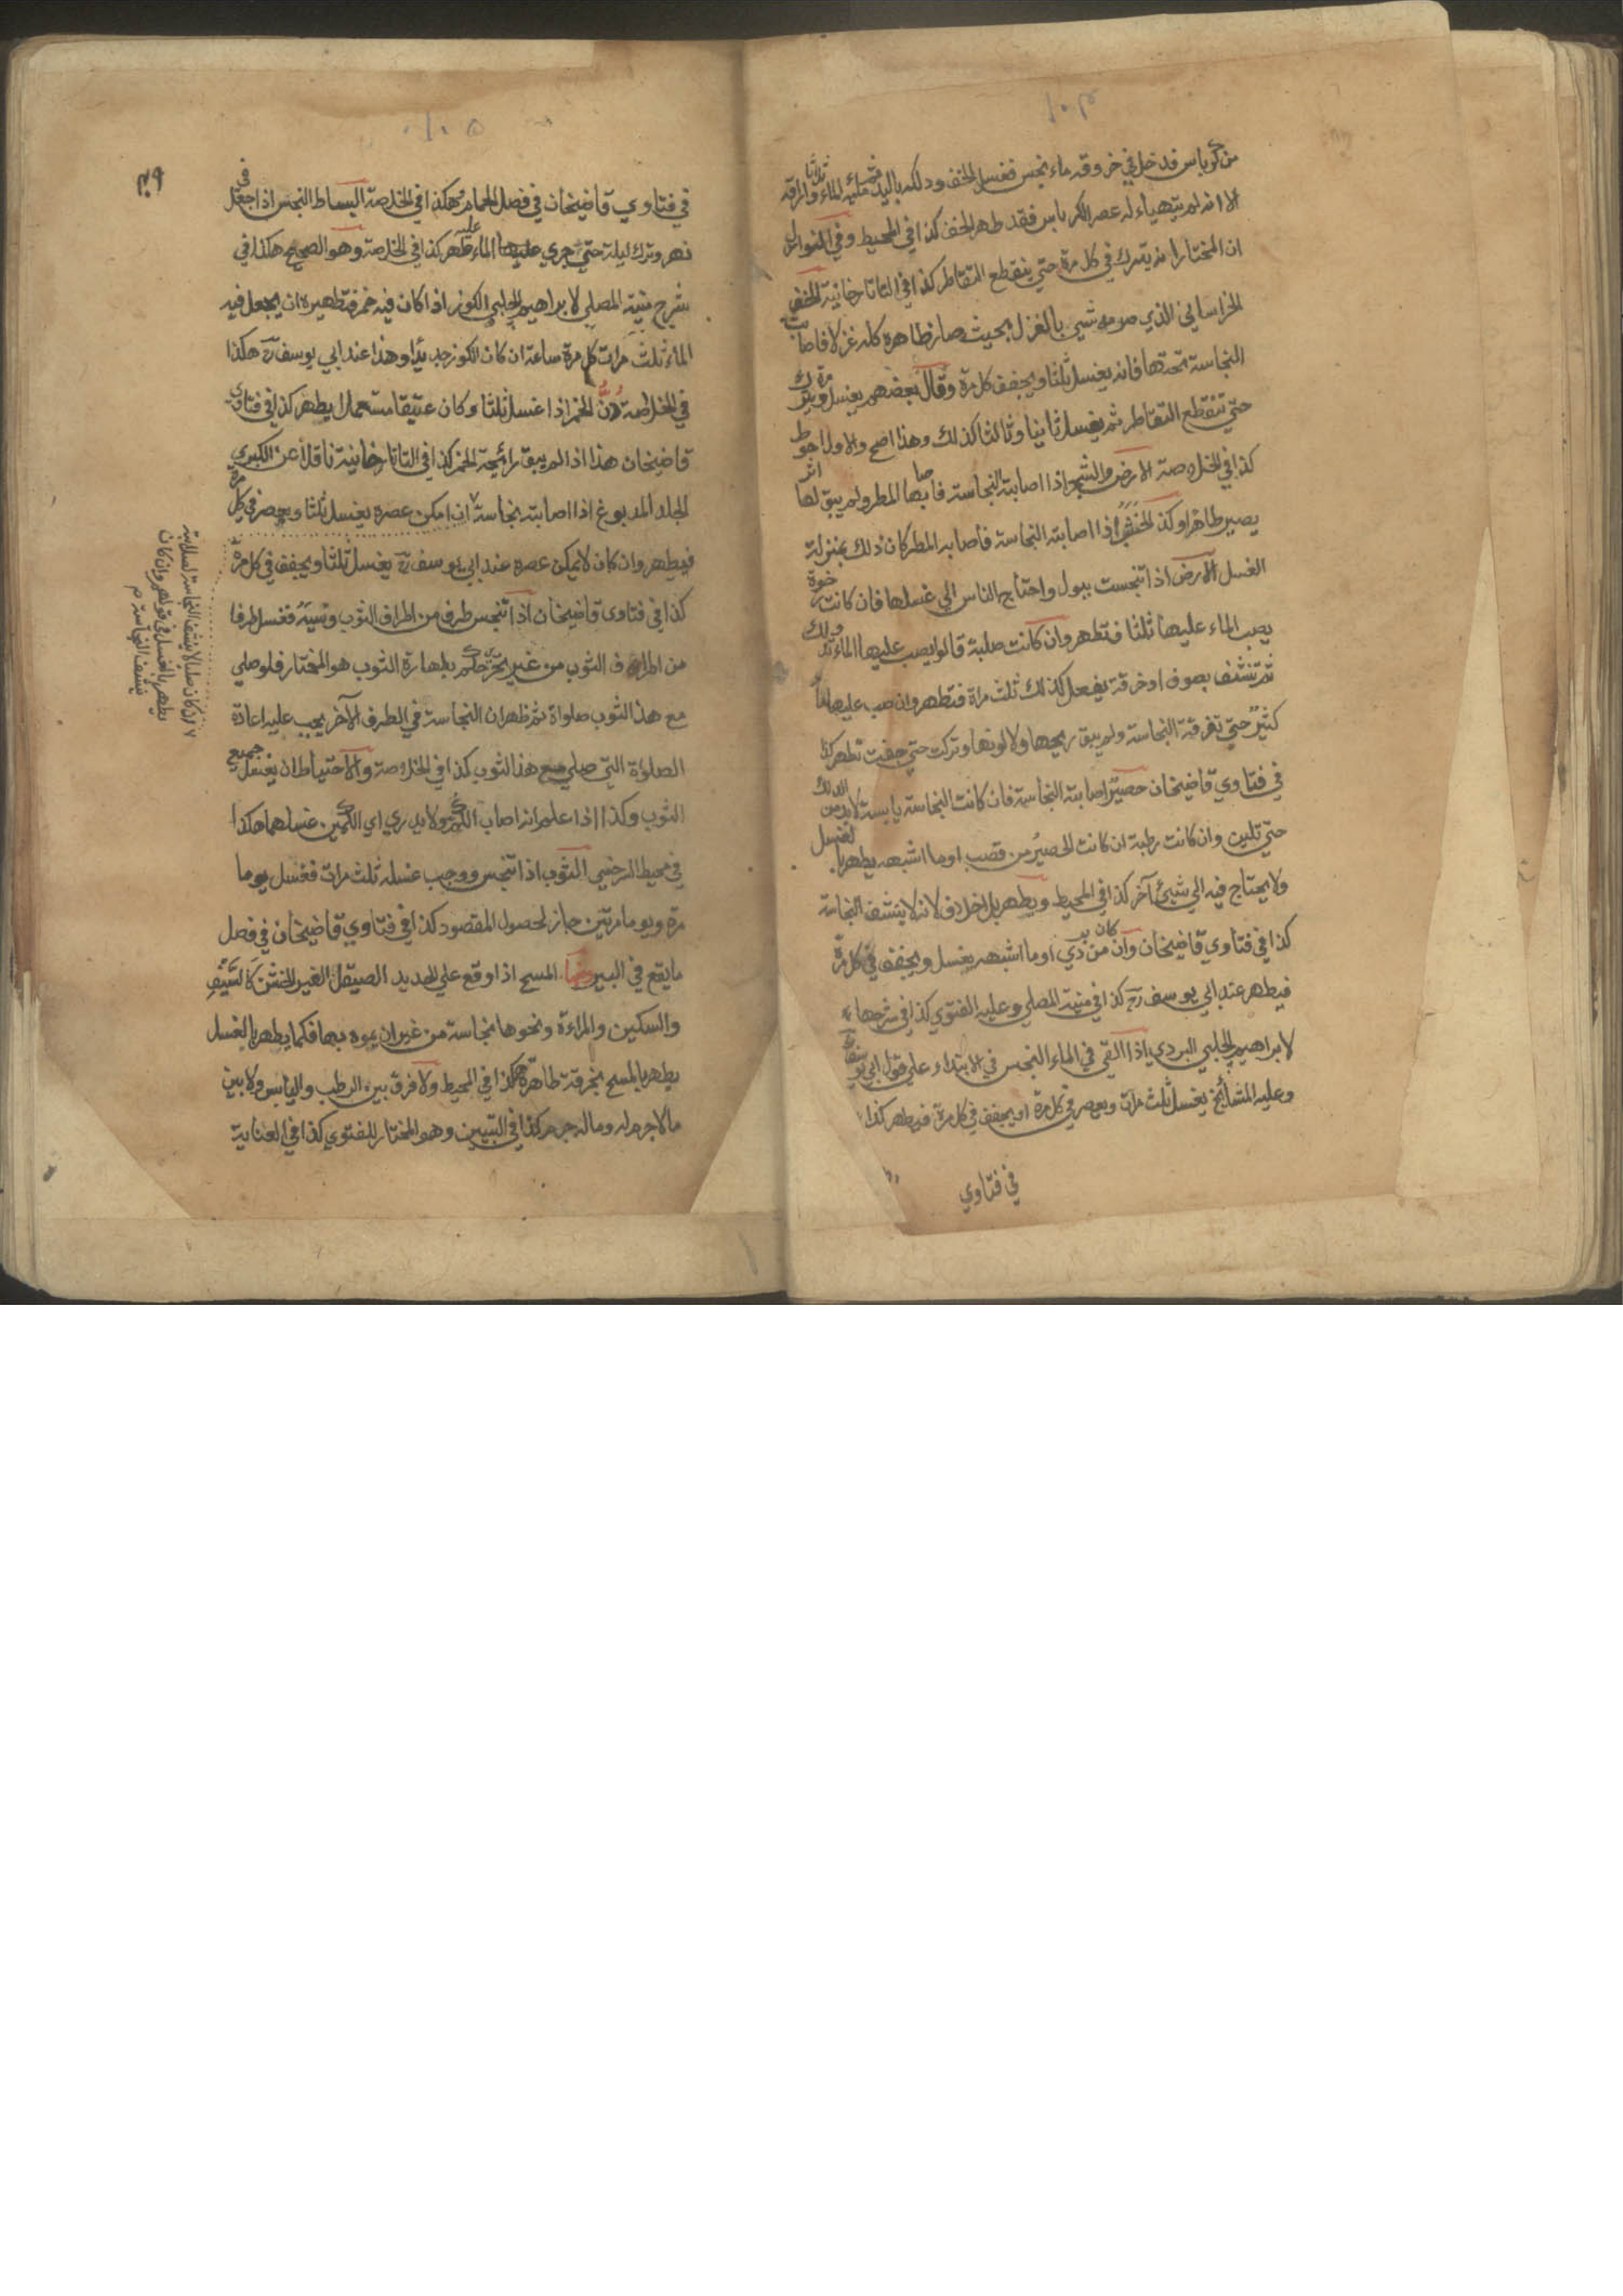 ١٠٤
من كرباس فدخل في خروقه ماء نجس فغسل الخف ودلكه باليد ثم ملئه الماء ثلاثا واراقه
الا انه لم يتهياء له عصر الكرباس فقد طهر الخف كذا في المحيط وفي النوازل
ان المختار انه يترك في كل مرة حتي ينقطع التقاطر كذا في التاتارخانية الخف
الخراساني الذي صرمه شي بالغزل بحيث صار ظاهره كله غزلا فاصابت
النجاسة تحتها فانه يغسل ثلثا ويجفف كل مرة وقال بعضهم يغسل مرة ويترك
حتي تنقطع التقاطر ثم يغسل ثانيا وثالثا كذلك وهذا اصح والاول احوط
كذا في الخلاصة الارض والشجر اذا اصابته النجاسة فاصابها المطر ولم يبق لها اثر
يصير طاهرا وكذا الخشب اذا اصابته النجاسة فأصابه المطر كان ذلك بمنزلة
الغسل الارض اذا تنجست ببول واحتاج الناس الي غسلها فان كانت رخوة
يصب الماء عليها ثلثا فتطهر وان كانت صلبة قالوا يصب عليها الماء وتدلك
ثم تنشف بصوف او خرقة يفعل كذلك ثلث مراة فتطهر وان صب عليها ماء
كثير حتي تفرقة النجاسة ولم يبق ريحها ولا لونها وتركت حتي جفت تطهر كذا
في فتاوي قاضيخان حصير اصابته النجاسة فان كانت النجاسة يابسة لابد من الدلك
حتي تلين وان كانت رطبة ان كانت الحصير من قصب او ما اشبهه يطهر بالغسل
ولا يحتاج فيه الي شيئ آخر كذا في المحيط ويطهر بلا خلاف لانه لا ينشف النجاسة
كذا في فتاوي قاضيخان وان كان من بردي او ما اشبهه يغسل ويجفف في كل مرة
فيطهر عند ابي يوسف رح كذا في منية المصلي وعليه الفتوي كذا في شرحها
لابراهيم الجلبي البردي اذا القي في الماء النجس في الابتداء علي قول ابي يوسف
وعليه المشائخ يغسل ثلث مرات ويعصر في كل مرة او يجفف في كل مرة فيطهر كذا
في فتاوي
١٠٥
في فتاوي قاضيخان في فصل الحمام هكذا في الخلاصة البساط النجس اذا جعل في
نهر وترك ليلة حتي جري عليه الماء طهر كذا في الخلاصة وهو الصحيح هكذا في
شرح منية المصلي لابراهيم الجلبي الكوز اذا كان فيه خمر فتطهيره ان يجعل فيه
الماء ثلث مرات كل مرة ساعة ان كان الكوز جديدا وهذا عند ابي يوسف رح هكذا
في الخلاصة دن الخمر اذا غسل ثلثا وكان عتيقا مستعملا يطهر كذا في فتاوي
قاضيخان هذا اذا لم يبق رائحة الخمر كذا في التاتارخانية ناقلا عن الكبري
الجلد المدبوغ اذا اصابته نجاسة ٧ ان امكن عصره يغسل ثلثا ويعصر في كل مرة
فيطهر وان كان لا يمكن عصره عند ابي يوسف رح يغسل ثلثا ويجفف في كل مرة
كذا في فتاوى قاضيخان اذا تنجس طرف من اطراف الثوب ونسيه فغسل طرفا
من اطراف الثوب من غير تحر حكم بطهارة الثوب هو المختار فلو صلي
مع هذا الثوب صلواة ثم ظهر ان النجاسة في الطرف الآخر يجب عليه اعادة
الصلواة التي صلي مع هذا الثوب كذا في الخلاصة والاحتياط ان يغسل جميع
الثوب وكذا اذا علم انه اصاب الكم ولا يدري اي الكمين غسلهما هكذا
في محيط السرخسي الثوب اذا تنجس ووجب غسله ثلث مرات فغسل يوما
مرة ويوما مرتين جاز لحصول المقصود كذا في فتاوي قاضيخان في فصل
ما يقع في البير ومنها المسح اذا وقع علي الحديد الصيقل الغير الخشن كالسيف
والسكين والمراءة ونحوها نجاسة من غير ان يموه بها فكما يطهر بالغسل
يطهر بالمسح بخرقة طاهرة هكذا في المحيط ولا فرق بين الرطب واليابس ولا بين
ما لا جرم له وما له جرم كذا في التبيين وهو المختار للفتوي كذا في العناية
٧ ان كان صلبا لا ينشف النجاسة لصلابته
يطهر بالغسل في قولهم وان كان
ينشف النجاسة م